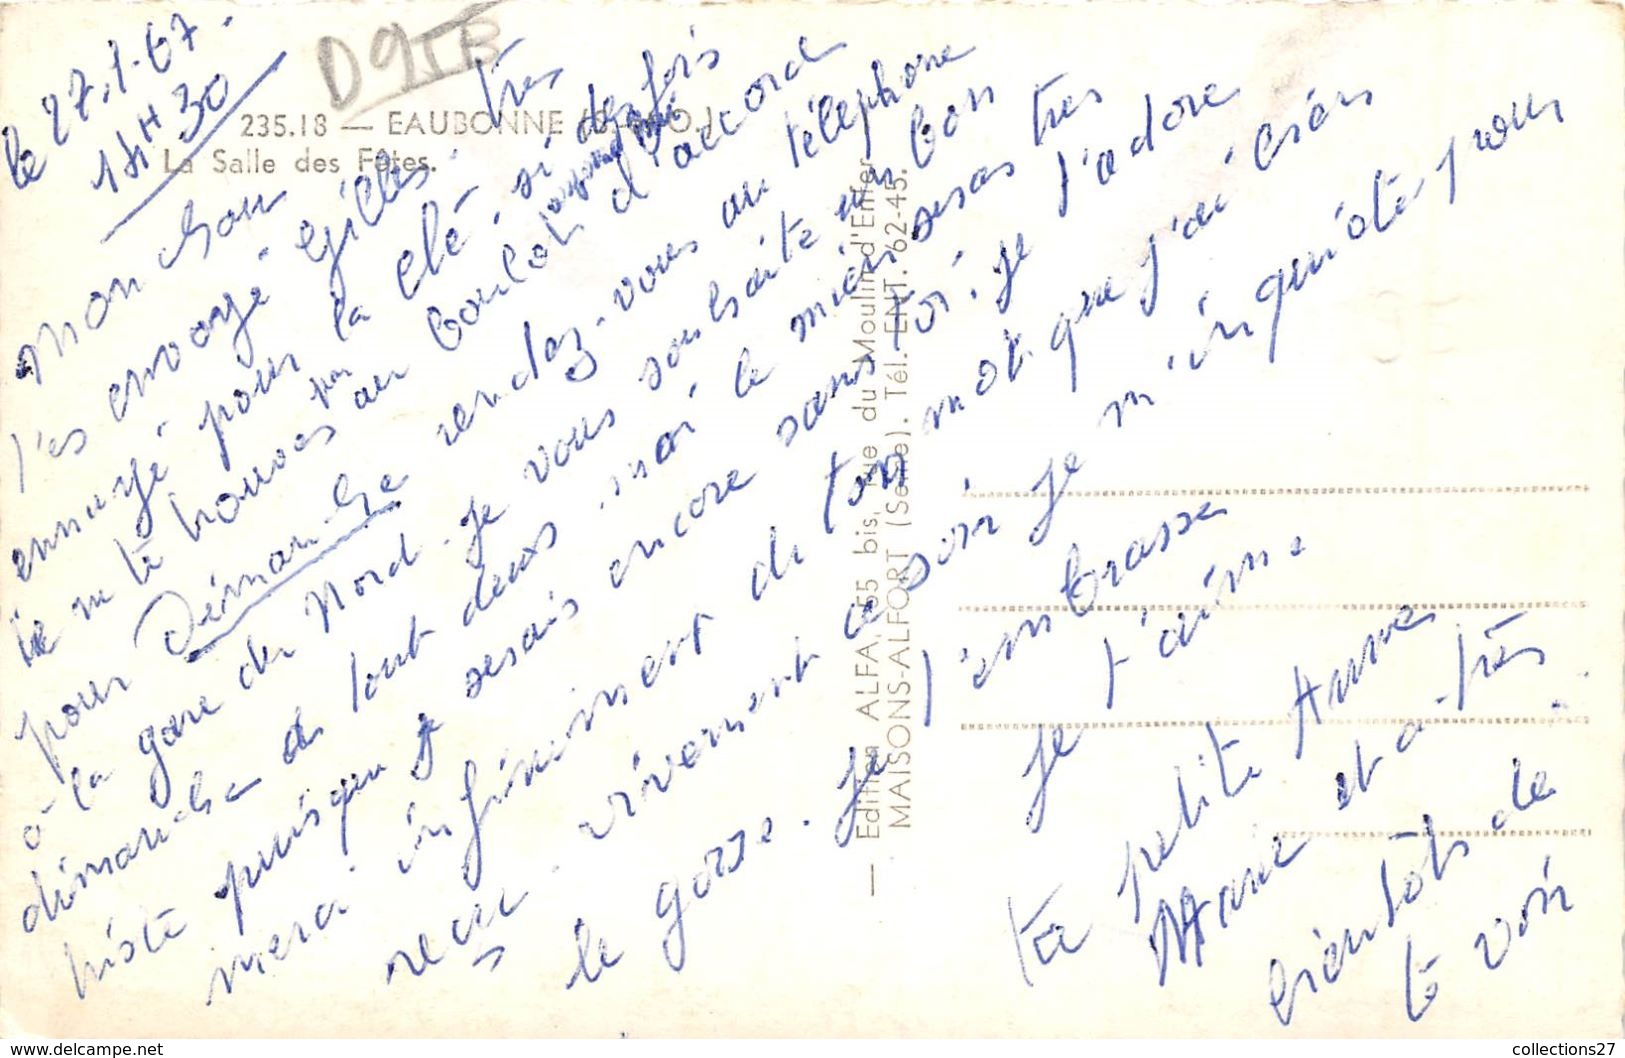 D95B
le 27.1.67.
14H30
235.18 — EAUBONNE (S.-&-O.)
La Salle des Fêtes.
Mon Chou
J'ai envoyé Gilles très
ennuyé pour la clé si des fois
je ne te trouves pas au boulot aujourd'hui
pour Dimanche rendez-vous d'accord
à la gare du Nord. Je vous au téléphone
dimanche à tout deux souhaite un bon
moi le mien seras très
triste puisque je serais encore sans toi. Je t'adore
merci infiniment du ton mot que j'ai bien
reçu. vivement ce soir je m'inquiète pour
le gosse. Je t'embrasse
Je t'aime.
ta petite femme
Marie et a très
bientôt de
te voir
— Edition ALFA, 55 bis, rue du Moulin d'Enfer
MAISONS-ALFORT (Seine). Tél. ENT. 62-45.
www.delcampe.net
collections27